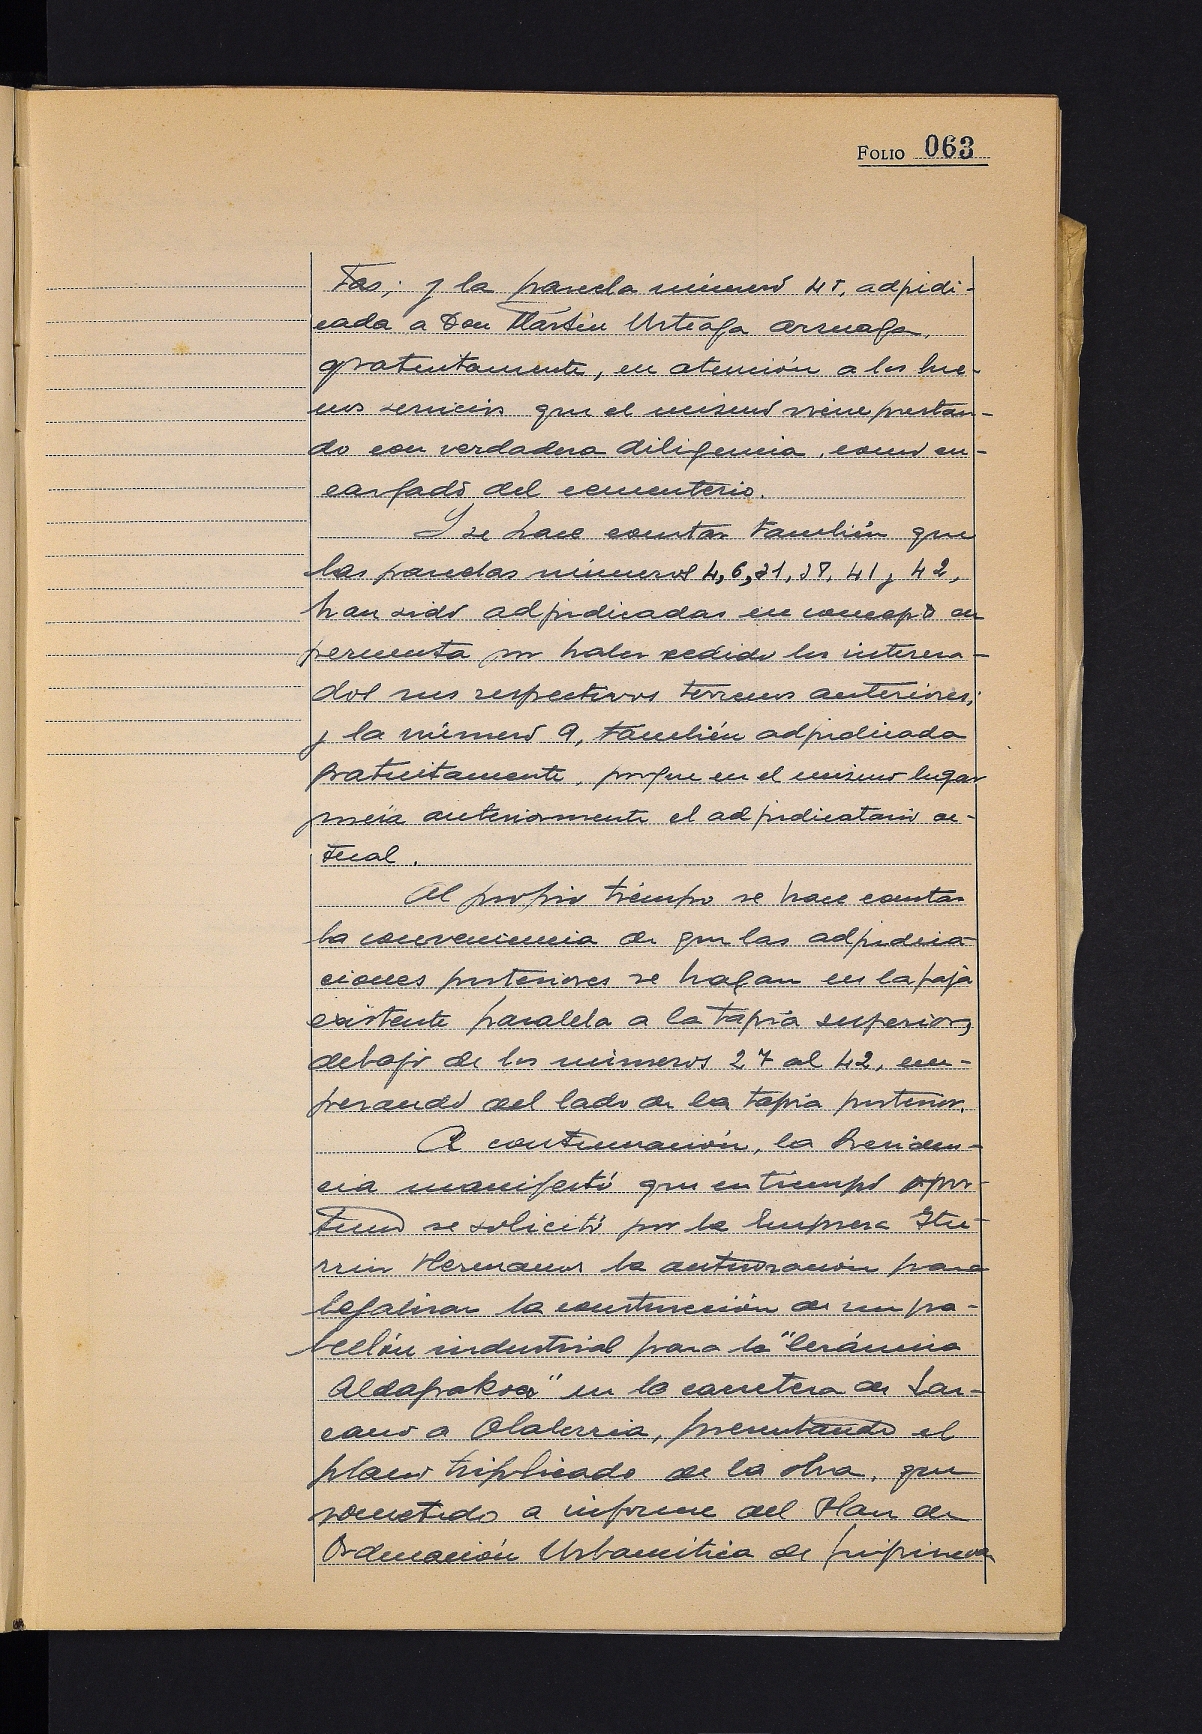 FOLIO 063
tas; y la parcela número 45, adjudi-
cada a Don Martín Urteaga Arsuaga,
gratuitamente, en atención a los bue-
nos servicios que el mismo viene prestan-
do con verdadera diligencia, como en-
cargado del cementerio.
Y se hace constar también que
las parcelas números 4, 6, 31, 38, 41 y 42,
han sido adjudicadas en concepto de
permuta por haber cedido los interesa-
dos sus respectivos terrenos anteriores;
y la número 9, también adjudicada
gratuitamente, porque en el mismo lugar
poseía anteriormente el adjudicatario ac-
tual.
Al propio tiempo se hace constar
la conveniencia de que las adjudica
ciones posteriores se hagan en la faja
existente paralela a la tapia superior,
debajo de los números 27 al 42, em-
pezando del lado de la tapia posterior.
A continuación, la Presiden-
cia manifestó que en tiempo opor-
tuno se solicitó por la Empresa Itu-
rrioz Hermanos la autorización para
legalizar la construcción de un pa-
bellón industrial para la "Cerámica
Aldapakoa" en la carretera de Laz-
cano a Olaberria, presentando el
plano triplicado de la obra, que
sometido a informe del Plan de
Ordenación Urbanística de Guipúzcoa